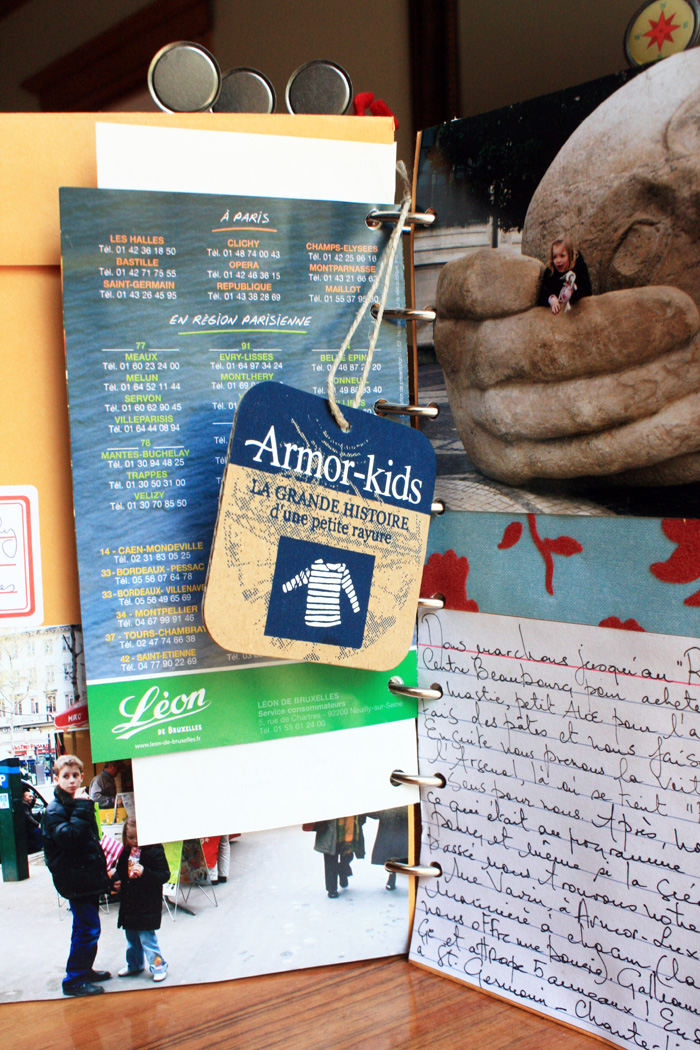 À PARIS
LES HALLES
Tél. 01 42 36 18 50
BASTILLE
Tél. 01 42 71 75 55
SAINT-GERMAIN
Tél. 01 43 26 45 95
CLICHY
Tél. 01 48 74 00 43
OPERA
Tél. 01 42 46 36 15
REPUBLIQUE
Tél. 01 43 38 28 69
CHAMPS-ELYSEES
Tél. 01 42 25 96 16
MONTPARNASSE
Tél. 01 43 21 66 62
MAILLOT
Tél. 01 55 37 95
EN RÉGION PARISIENNE
77
MEAUX
Tél. 01 60 23 24 00
MELUN
Tél. 01 64 52 11 44
SERVON
Tél. 01 60 62 90 45
VILLEPARISIS
Tél. 01 64 44 08 94
78
MANTES-BUCHELAY
Tél. 01 30 94 48 25
TRAPPES
Tél. 01 30 50 31 00
VELIZY
Tél. 01 30 70 85 50
91
EVRY-LISSES
Tél. 01 64 97 34 24
MONTLHERY
Tél. 01 69
BELLE EPIN
14 - CAEN-MONDEVILLE
Tél. 02 31 83 05 25
33-BORDEAUX-PESSAC
Tél. 05 56 07 64 78
33-BORDEAUX-VILLENAV
Tél. 05 56 49 65 69
34 - MONTPELLIER
Tél. 04 67 99 46 43
37 -TOURS-CHAMBRAY
Tél. 02 47 74 66 38
42 - SAINT-ETIENNE
Tél. 04 77 90 22 69
Armor-kids
LA GRANDE HISTOIRE
d'une petite rayure
Léon
DE BRUXELLES
www.leon-de-bruxelles.fr
LÉON DE BRUXELLES
Service consommateurs
5, rue de Chartres - 92200 Neuilly-sur-Seine
Tél. 01 55 61 24 00
Nous marchons jusqu'au "R
Centre Beaubourg pour achete
Mast. petit Axe pour l'a
des pâtes et nous fais
ensuite nous prenons la voit
l'Arsenal, là où se tient "
pour nous. Après, no
ce qui était au programme
et même si la Sei
passé nous trouvons not
Vavin, à Armor-Lux
marinière à chacun
nous offre une
Ge et attrape 5 anneaux ! Ens
à St. Germain - Chante